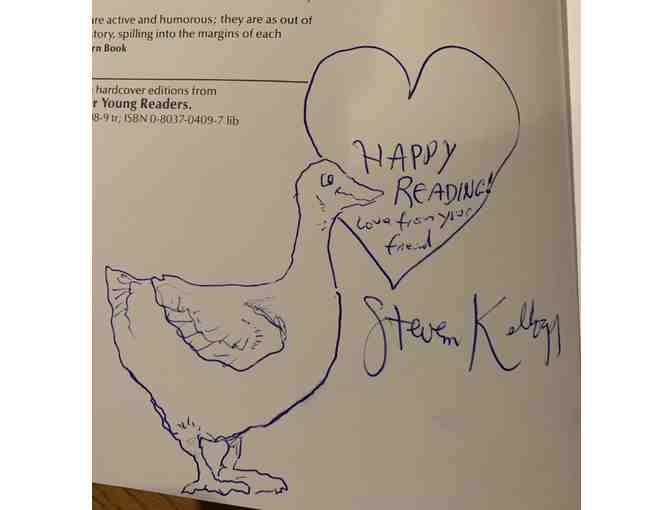 are active and humorous; they are as out of
story, spilling into the margins of each
rn Book
hardcover editions from
r Young Readers.
08-9 tr; ISBN 0-8037-0409-7 lib
HAPPY
READING!
Love from your
friend
Steven Kellogg